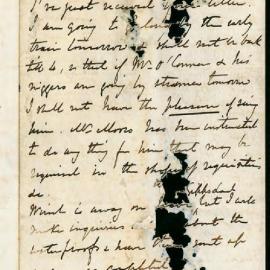 I've just received your letter.
I am going to by the early
train tomorrow & shall not be back
till 6, so that if Mr. O'Connor & his
niggers are going by steamer tomorrow
I shall not have the pleasure of seeing
him. Mr Moors has been instructed
to do any thing for him that may be
required in the shape of requisitions
&c.
is away on but I will
make inquiries about the
waterproofs & have them sent up